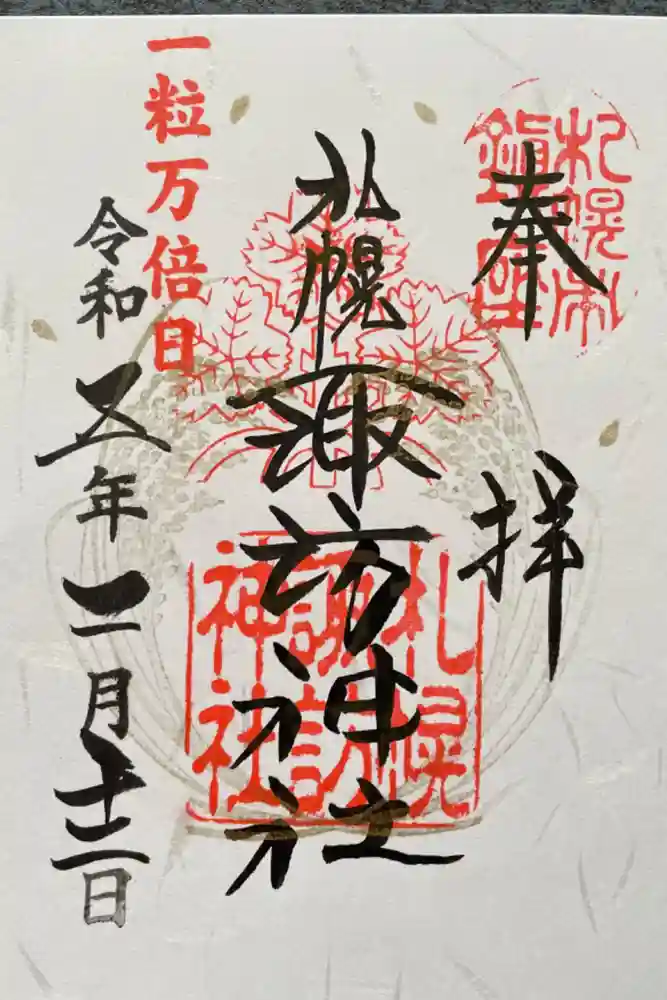 奉拝
札幌諏訪神社
一粒万倍日
令和五年二月十二日
札幌
諏訪
神社